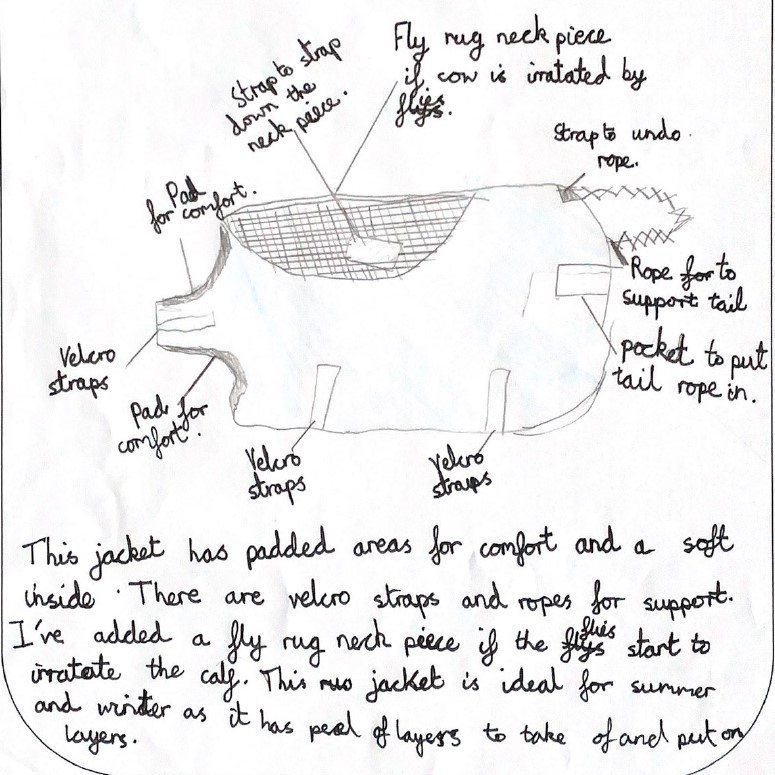 Fly rug neck piece
if cow is irratated by
flies.
Strap to strap
down the
neck peice.
Strap to undo
rope.
Pad
for comfort.
Rope for to
support tail
pocket to put
tail rope in.
Velcro
straps
Pad for
comfort.
Velcro
straps
Velcro
straps
This jacket has padded areas for comfort and a soft
inside. There are velcro straps and ropes for support.
I've added a fly rug neck peice if the flys flies start to
irratate the calf. This jacket is ideal for summer
and winter as it has peel of layers to take of and put on
layers.